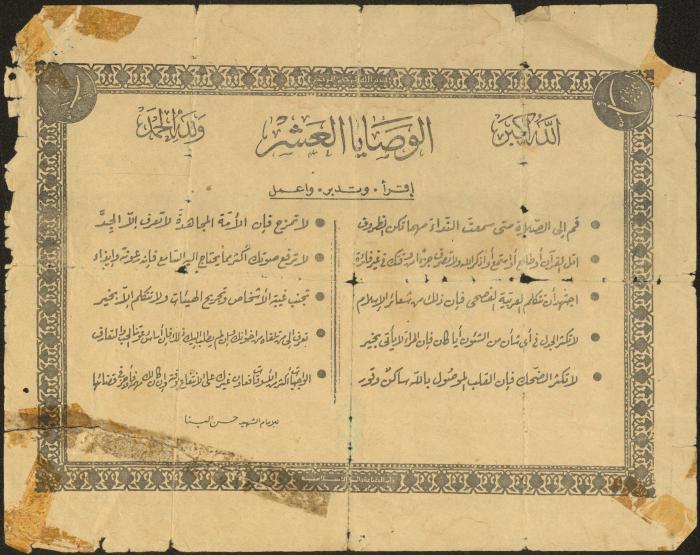 الله أكبر
الوصايا العشر
ولله الحمد
إقرأ ، وتدبر ، واعمل
قم إلى الصلاة متى سمعت النداء مهما تكن الظروف
اتل القرآن أو طالع أو استمع أو اذكر الله ولا تصرف جزءا من وقتك في غير فائدة
اجتهد أن تتكلم العربية الفصحى فإن ذلك من شعائر الإسلام
لا تكثر الجدل في أي شأن من الشئون أيا كان فإن المراء لا يأتي بخير
لا تكثر الضحك فإن القلب الموصول بالله ساكن وقور
لا تمزح فإن الأمة المجاهدة لا تعرف إلا الجد
لا ترفع صوتك أكثر مما يحتاج إليه السامع فإنه رعونة وإيذاء
تجنب غيبة الأشخاص وتجريح الهيئات ولا تتكلم إلا بخير
تعرف إلى من تلقاه من اخوانك وإن لم يطلب إليك ذلك فإن أساس دعوتنا الحب والتعارف
الواجبات أكثر من الأوقات فعاون غيرك على الانتفاع بوقته وإن كان لك مهمة فأوجز في قضائها
للإمام الشهيد حسن البنا